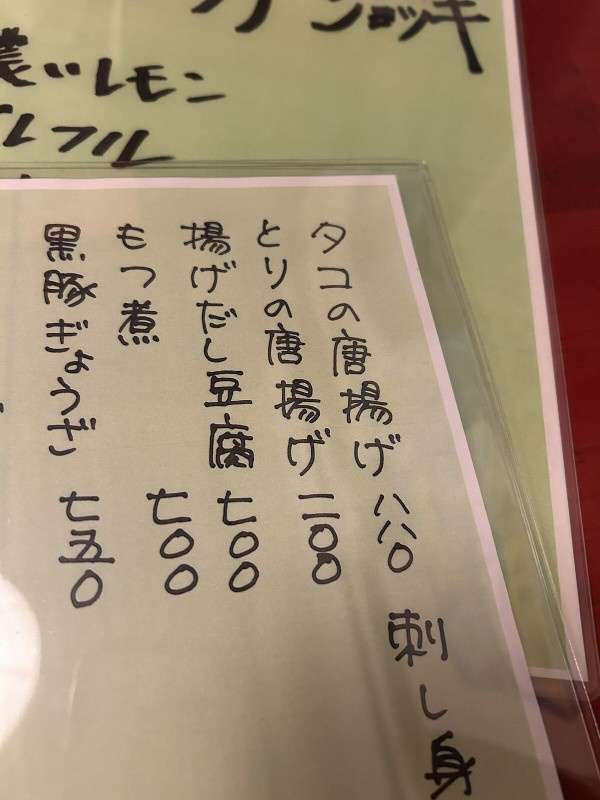 ジョッキ
濃いレモン
刺し身
タコの唐揚げ 八八〇
とりの唐揚げ 一一〇〇
揚げだし豆腐 七〇〇
もつ煮 七〇〇
黒豚ぎょうざ 七五〇